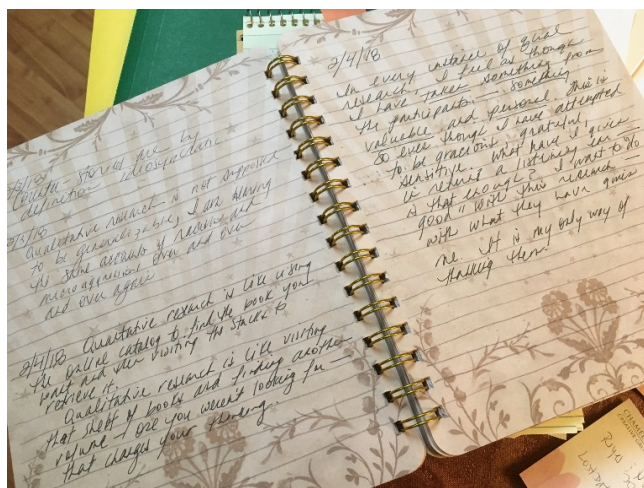 Counter stories are by
definition idiosyncratic
2/3/18
Qualitative research is not supposed
to be generalizable, I am hearing
the same accounts of racism and
microaggressions over and over
and over again
2/4/18 Quantitative research is like using
the online catalog to find the book you
want and then visiting the stacks to
retrieve it.
Qualitative research is like visiting
that shelf of books and finding another
volume I one you weren't looking for
that changes your thinking.
2/4/18
In every instance of qual
research, I feel as though
I have taken something from
the participator - something
valuable and personal. This is
so even though I have attempted
to be gracious, grateful,
sensitive. What have I given
in return a listening ear
is that enough? I want to do
good with this research
with what they have given
me. It is my only way of
thanking them.
CHAMEL